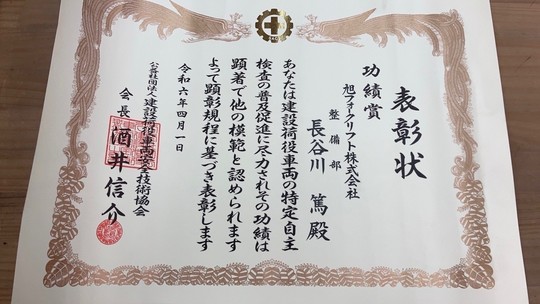 表彰状
功績賞
旭フォークリフト株式会社
整備部
長谷川 篤殿
あなたは建設荷役車両の特定自主
検査の普及促進に尽力されその功績は
顕著で他の模範と認められます
よって顕彰規程に基づき表彰します
令和六年四月一日
公益社団法人 建設荷役車両安全技術協会
会長 酒井信介